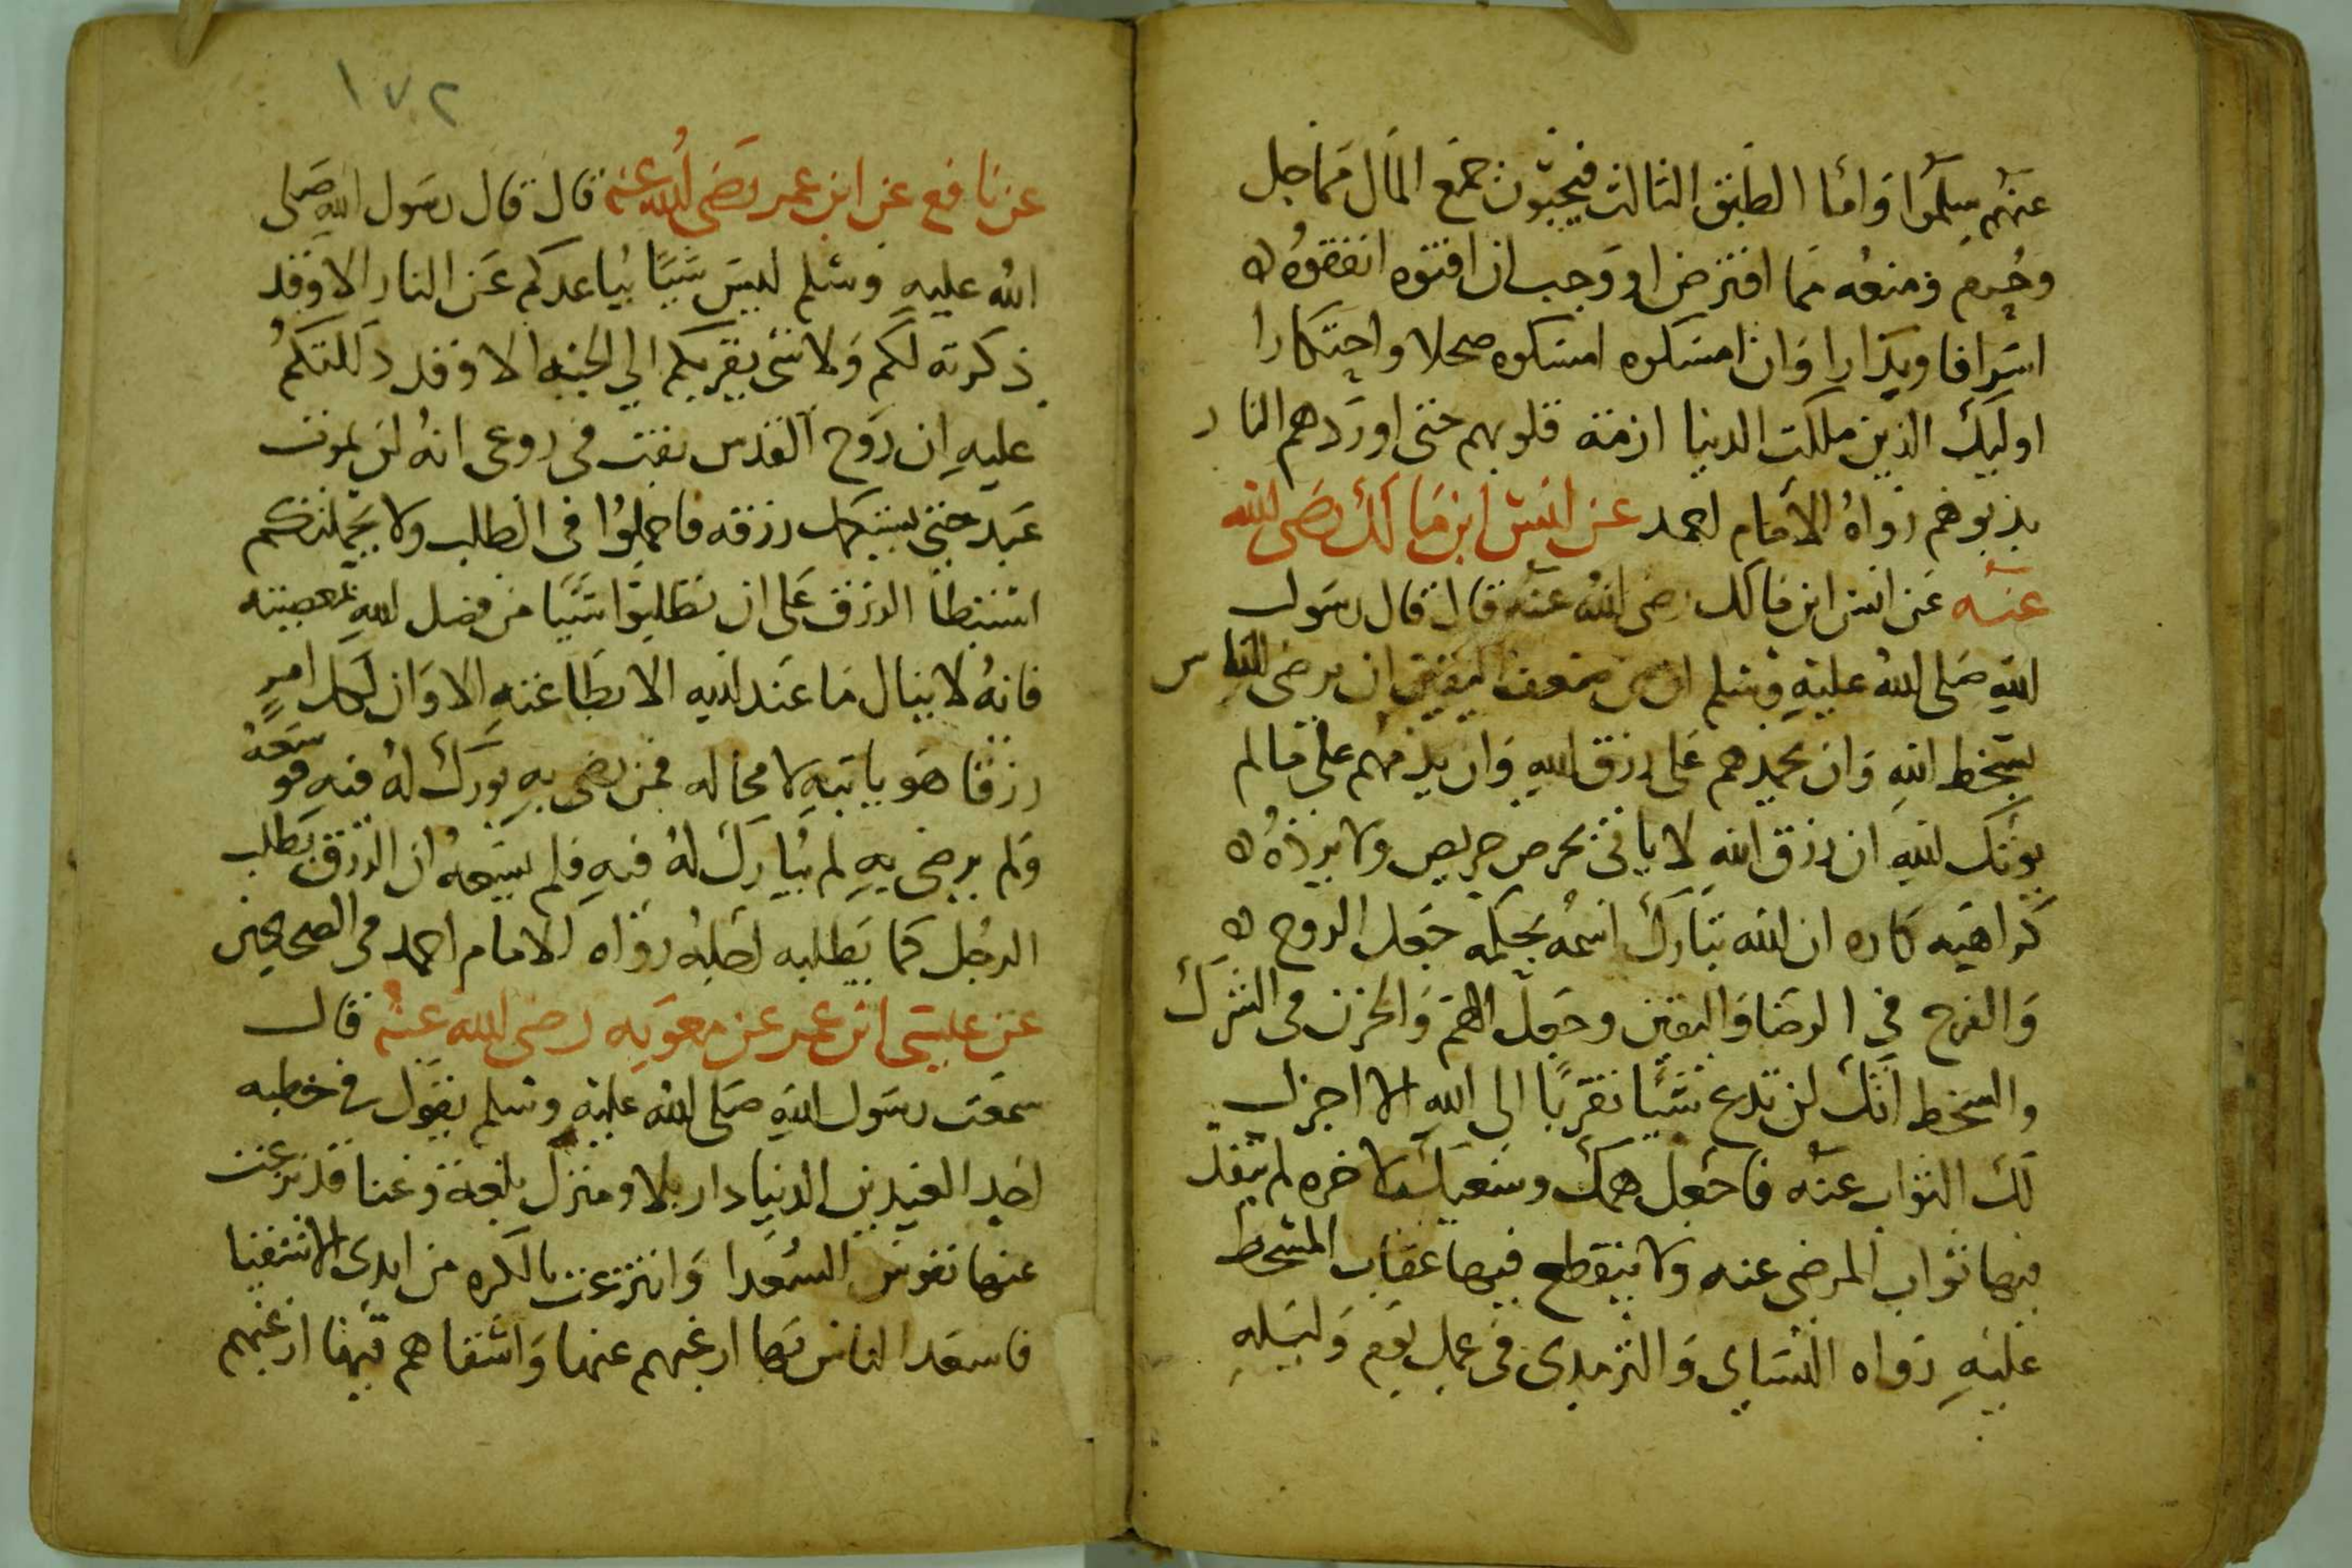 عنهم سلموا واما الطبق الثالث فيحبون جمع المال مما حل
وحرم ومنعه مما افترض او وجب ان افتوه انفقوه
اسرافا وبدارا وان امسكوه امسكوه واحتكارا
اوليك الذين ملكت الدنيا ازمة قلوبهم حتى اوردهم النار
بذبوهم رواه الامام احمد عن انس ابن مالك رضى الله
عنه عن انس ابن مالك رضى الله عنه قال قال رسول
الله صلى الله عليه وسلم ان من ضعف اليقين ان ترضى الناس
بسخط الله وان تحمدهم على رزق الله وان تذمهم على ما لم
يوتك الله ان رزق الله لا ياتى بحرص حريص ولا يرده
كراهيه كاره ان الله تبارك اسمه بحكمه جعل الروح
والفرح في الرضا واليقين وجعل الهم والحزن فى الشرك
والسخط انك لن تدع شيا تقربا الى الله الا اجزل
لك الثواب عنه فاجعل همك وسعيك لاخره لم ينفد
فيها ثواب المرضى عنه ولا ينقطع فيها عقاب المسخط
عليه رواه النساى والترمدى فى عمل يوم وليله
١٧٢
عن نافع عن ابن عمر رضى الله عنه قال قال رسول الله صلى
الله عليه وسلم ليس شيا يباعدكم عن النار الا وقد
ذكرته لكم ولا شى يقربكم الي الجنه الا وقد دللتكم
عليه ان روح القدس نفث فى روعى انه لن يموت
عبد حتى يستكمل رزقه فاجملوا فى الطلب ولا يحملنكم
استبطا الرزق على ان تطلبوا شيا من فضل الله بمعصيته
فانه لا ينال ما عند الله الا بطاعته الا وان لكل امر
رزقا هو ياتيه لا محاله فمن رضى به بورك له فيه فو سعه
ولم يرضى به لم يبارك له فيه فلم يسعه ان الرزق يطلب
الرجل كما يطلبه اجله رواه الامام احمد فى الصحيحين
عن على ابن عمر عن معويه رضى الله عنه قال
سمعت رسول الله صلى الله عليه وسلم يقول فى خطبه
احد العيدين الدنيا دار بلا ومنزل بلغة وعنا قد نزعت
عنها نفوس السعدا وانتزعت بالكره من ايدى الاشقيا
فاسعد الناس بها ارغبهم عنها واشقاهم بها ارغبهم